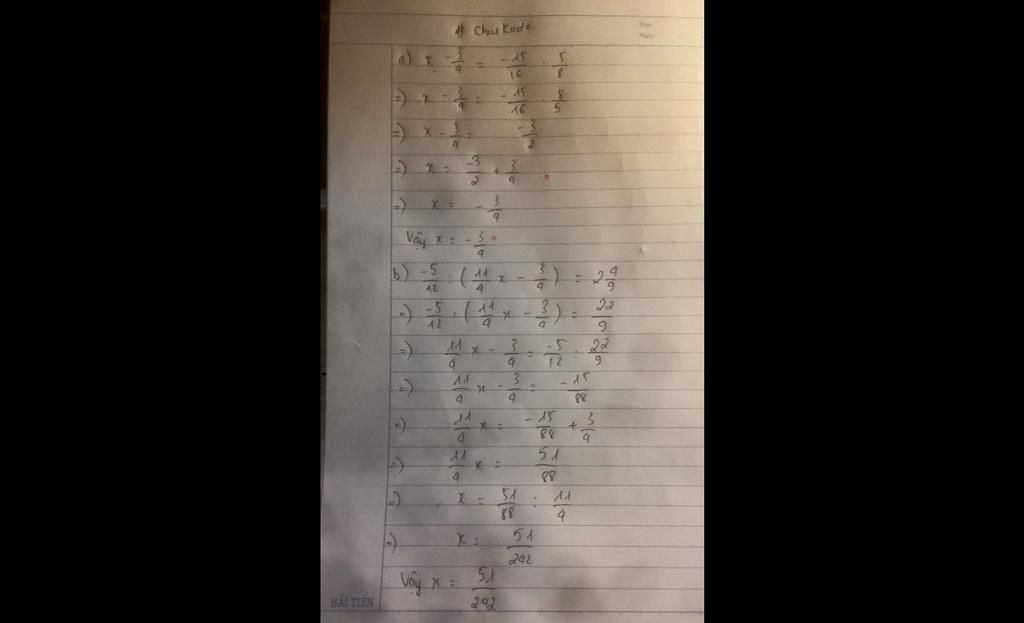 # Chuikudo
a) x - 3/4 = -15/16 : 5/8
=) x - 3/4 = -15/16 . 8/5
=) x - 3/4 = -3/2
=) x = -3/2 + 3/4
=) x = -3/4
Vậy x = -3/4
b) -5/12 : (11/4 x - 3/4) = 2 4/9
=) -5/12 : (11/4 x - 3/4) = 22/9
=) 11/4 x - 3/4 = -5/12 : 22/9
=) 11/4 x - 3/4 = -15/88
=) 11/4 x = -15/88 + 3/4
=) 11/4 x = 51/88
=) x = 51/88 : 11/4
=) x = 51/242
Vậy x = 51/242
HẢI TIẾN